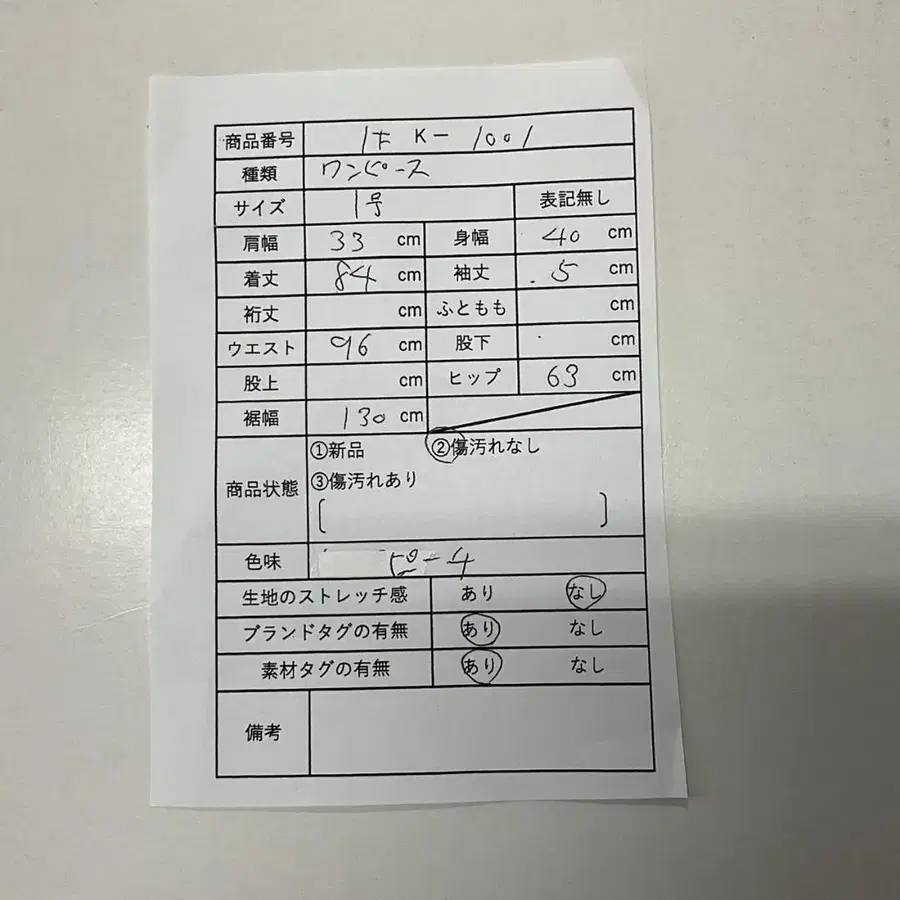 商品番号 K-1001
種類 ワンピース
サイズ 1号 表記無し
肩幅 33 cm 身幅 40 cm
着丈 84 cm 袖丈 .5 cm
裄丈 cm ふともも cm
ウエスト 96 cm 股下 cm
股上 cm ヒップ 63 cm
裾幅 130 cm
商品状態 ①新品 ②傷汚れなし
③傷汚れあり
[ ]
色味
生地のストレッチ感 あり なし
ブランドタグの有無 あり なし
素材タグの有無 あり なし
備考